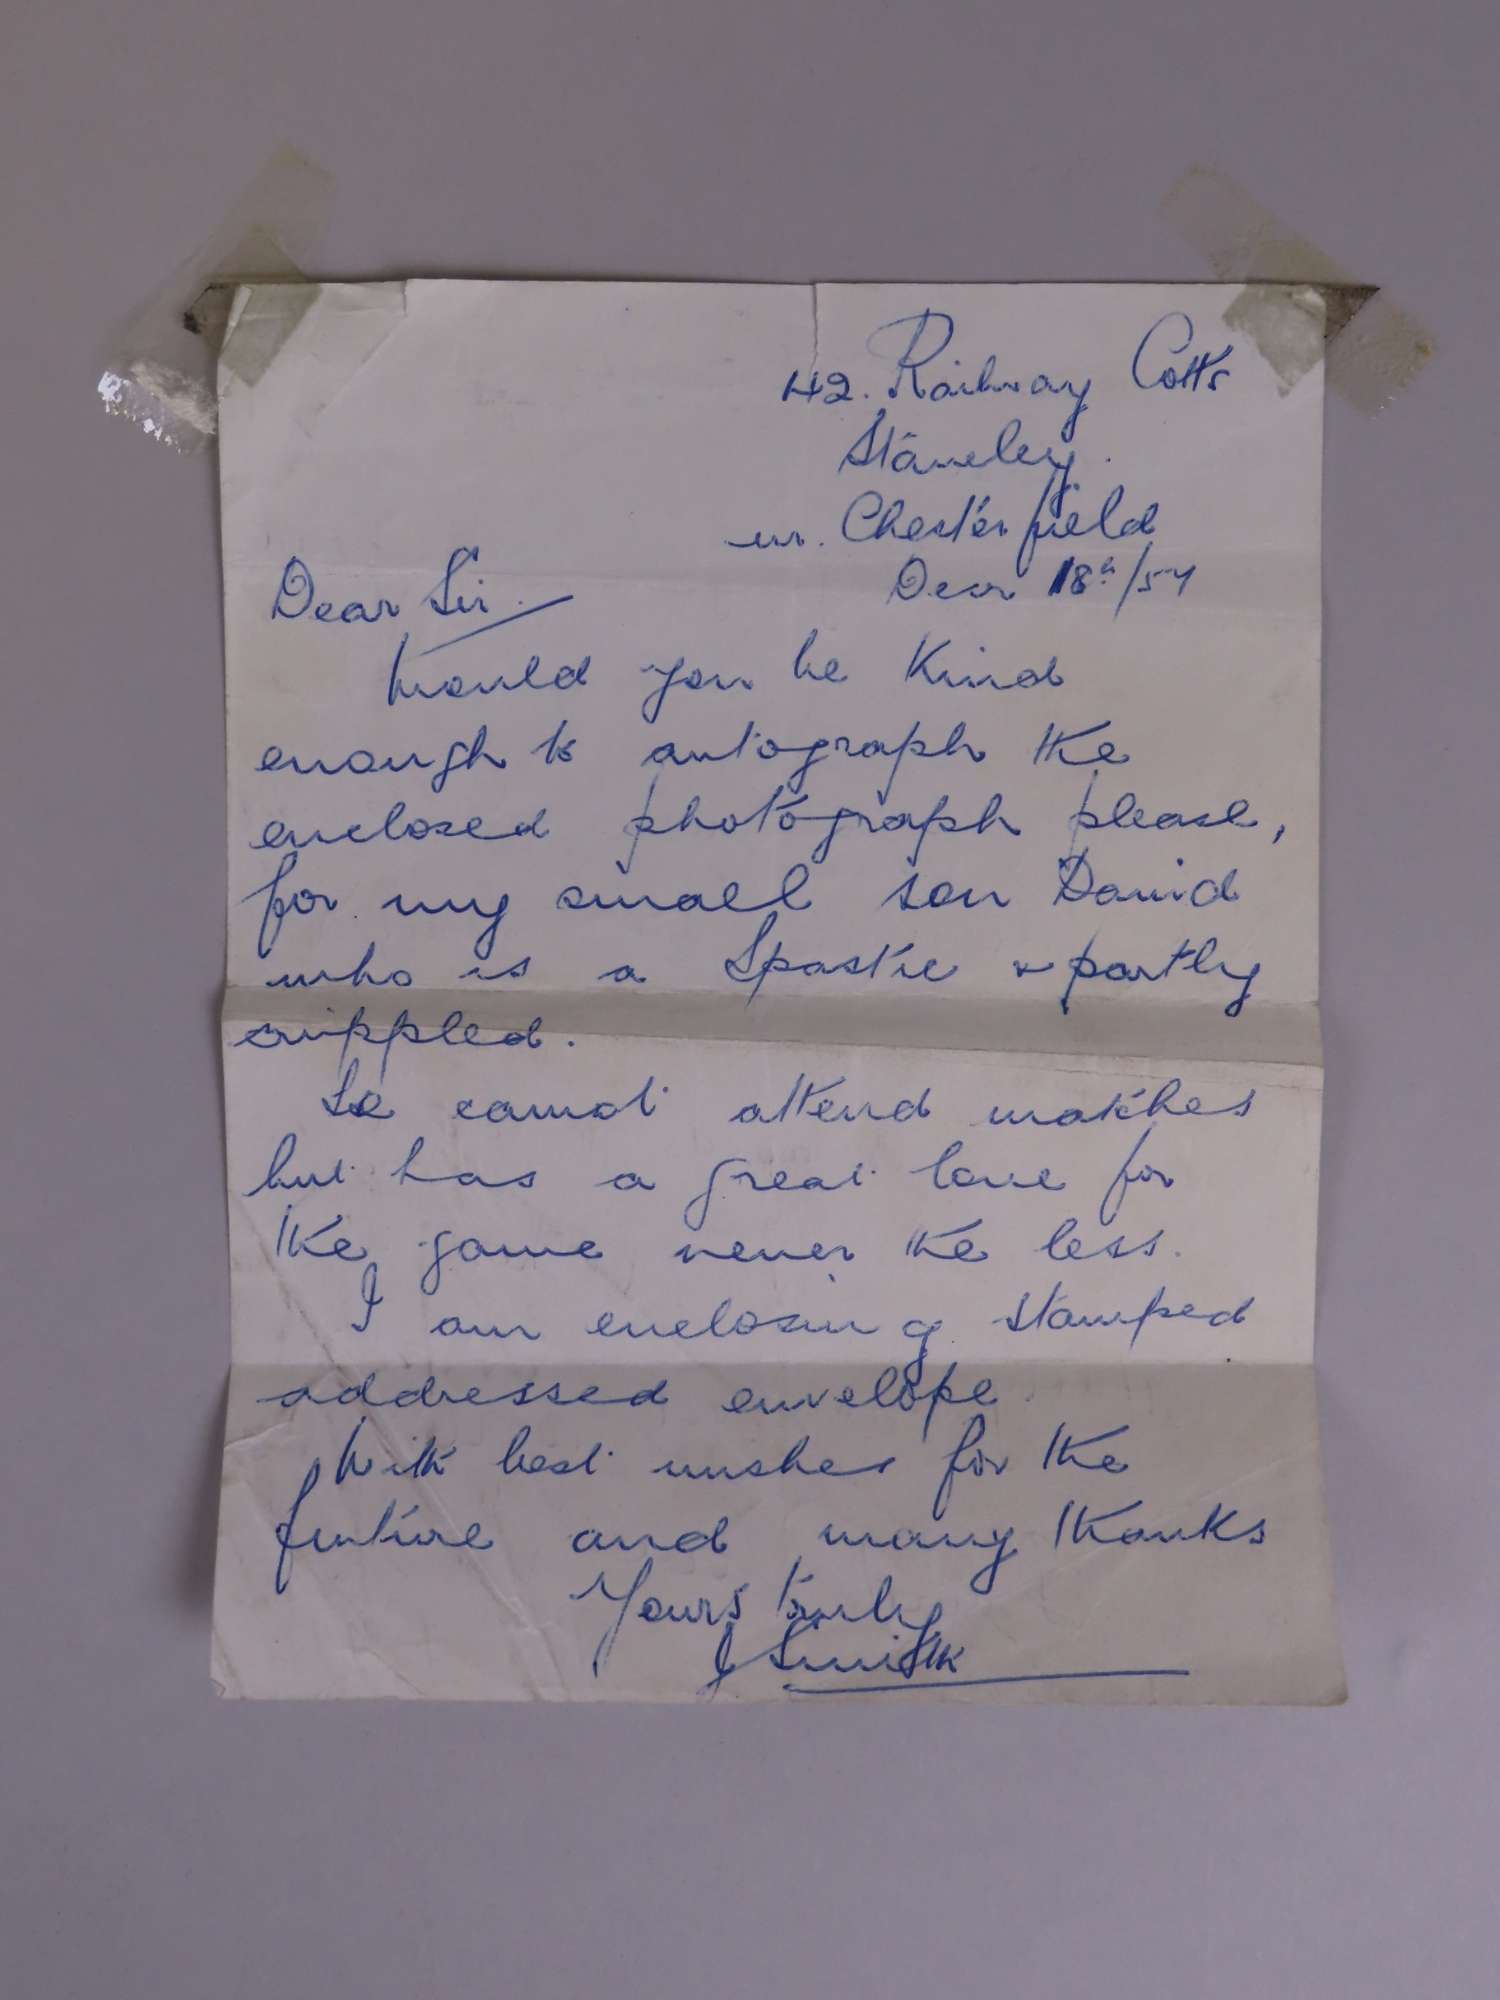 42. Railway Cotts
Staveley.
nr. Chesterfield
Dear Sir. Decr 18th/57
Would you be kind
enough to autograph the
enclosed photograph please,
for my small son David
who is a Spastic & partly
crippled.
He cannot attend matches
but has a great love for
the game never the less.
I am enclosing stamped
addressed envelope.
With best wishes for the
future and many thanks
Yours truly
J Smith